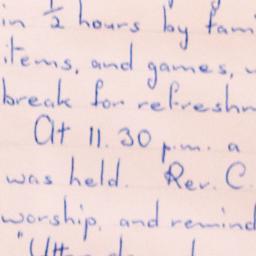 in ½ hours by fam
items, and games,
break for refreshm
At 11.30 p.m. a
was held. Rev. C.
worship, and remind